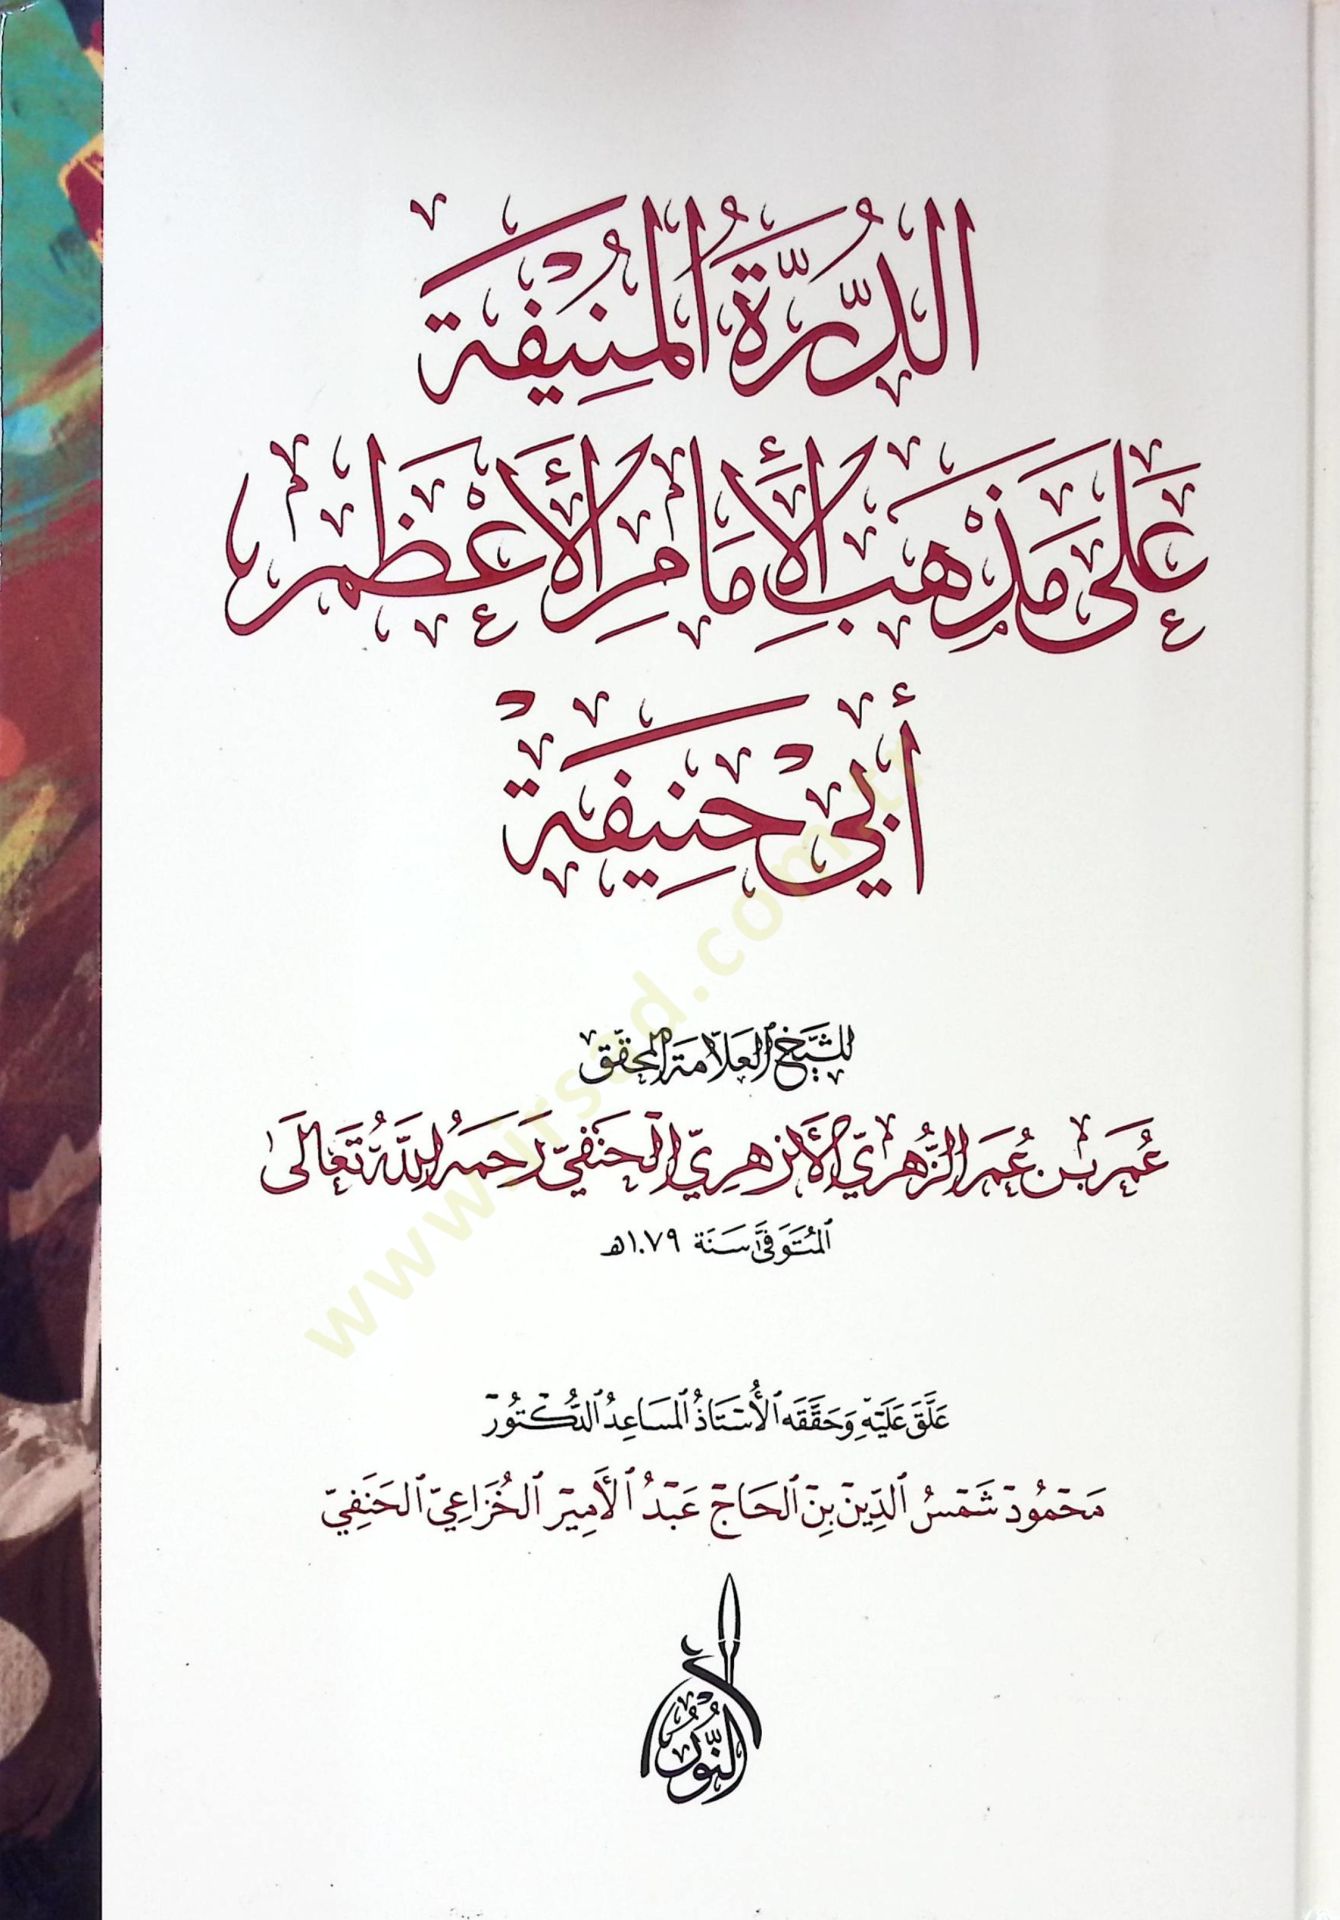 الدُّرَّةُ المُنِيفَة
عَلَى مَذْهَبِ الإِمَامِ الأَعْظَم
أَبِي حَنِيفَةَ
للشيخ العلامة المحقق
عُمَر بْن عُمَر الزُّهْرِيّ الأَزْهَرِيّ الحَنَفِيّ رَحِمَهُ اللَّهُ تَعَالَى
المُتَوَفَّى سَنَة ١٠٧٩هـ
عَلَّقَ عَلَيْهِ وَحَقَّقَه الأُسْتَاذُ المسَاعِدُ الدُّكْتُورْ
مَحْمُودْ شَمْسُ الدِّينْ بِنْ الحَاجْ عَبْدُ الأَمِيرْ الخُزَاعِيّ الحَنَفِيّ
النُّورُ
www.irsad.com.tr